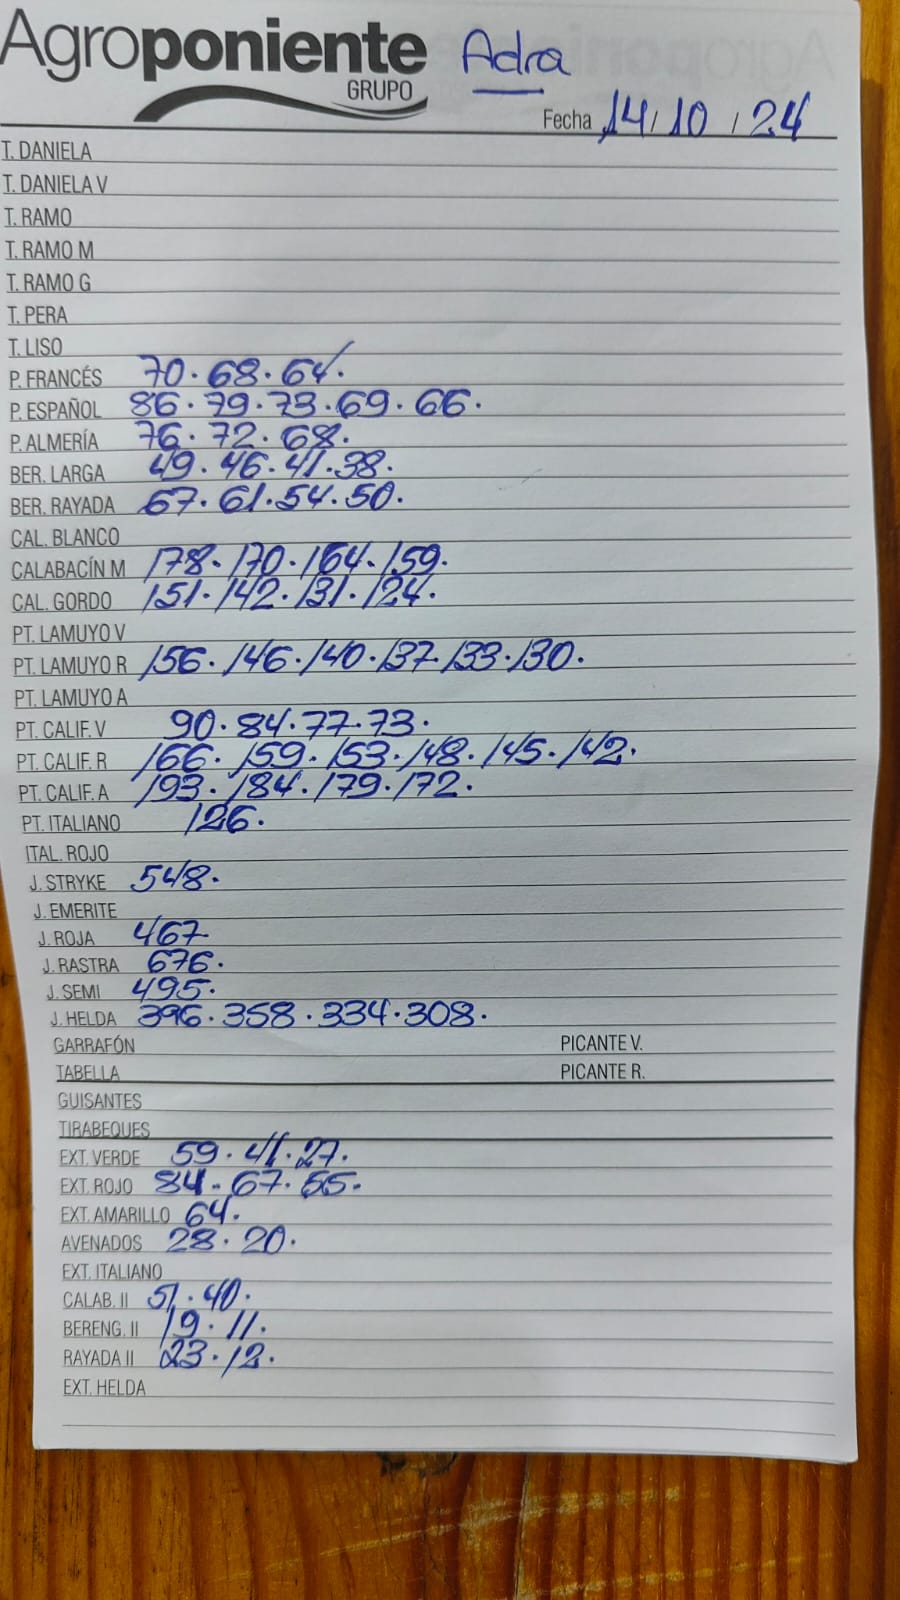 Agroponiente Adra
GRUPO
Fecha 14 / 10 / 24
T. DANIELA
T. DANIELA V
T. RAMO
T. RAMO M
T. RAMO G
T. PERA
T. LISO
P. FRANCÉS 70. 68. 64.
P. ESPAÑOL 86. 79. 73. 69. 66.
P. ALMERÍA 76. 72. 68.
BER. LARGA 49. 46. 41. 38.
BER. RAYADA 67. 61. 54. 50.
CAL. BLANCO
CALABACÍN M 178. 170. 164. 159.
CAL. GORDO 151. 142. 131. 124.
PT. LAMUYO V
PT. LAMUYO R 156. 146. 140. 137. 133. 130.
PT. LAMUYO A
PT. CALIF. V 90. 84. 77. 73.
PT. CALIF. R 166. 159. 153. 148. 145. 142.
PT. CALIF. A 193. 184. 179. 172.
PT. ITALIANO 126.
ITAL. ROJO
J. STRYKE 548.
J. EMERITE
J. ROJA 467
J. RASTRA 676.
J. SEMI 495.
J. HELDA 396. 358. 334. 308.
GARRAFÓN PICANTE V.
TABELLA PICANTE R.
GUISANTES
TIRABEQUES
EXT. VERDE 59. 41. 27.
EXT. ROJO 84. 67. 55.
EXT. AMARILLO 64.
AVENADOS 28. 20.
EXT. ITALIANO
CALAB. II 51. 40.
BERENG. II 19. 11.
RAYADA II 23. 12.
EXT. HELDA